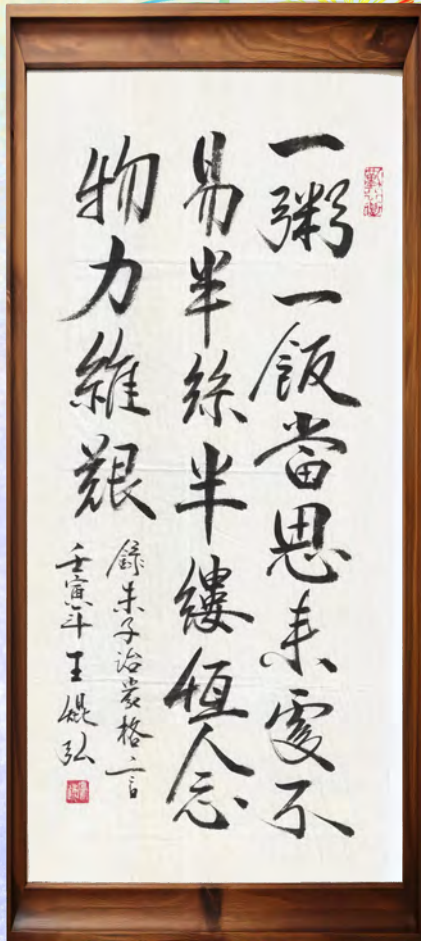 一粥一飯當思来處不
易半絲半縷恆念
物力維艱
錄朱子治家格言
壬寅年王弘